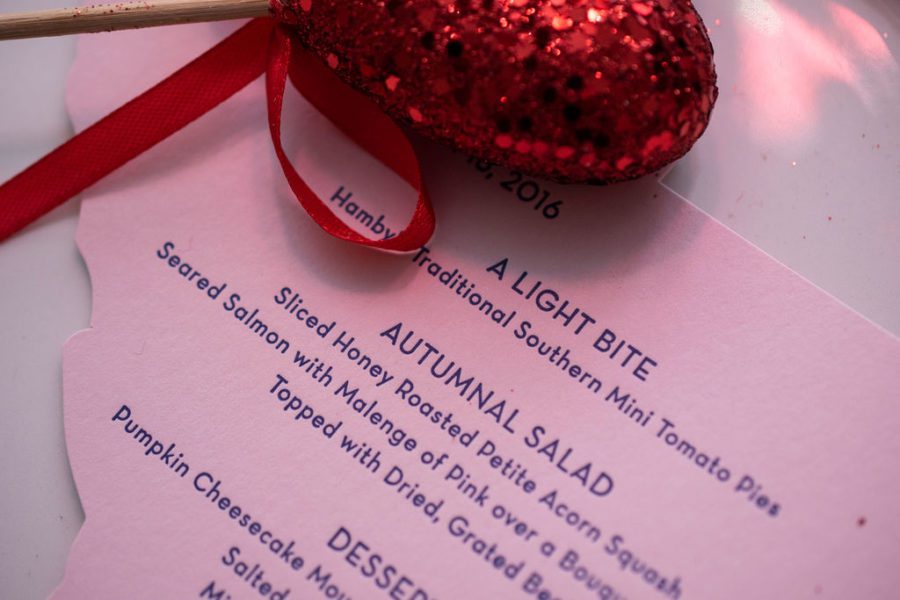 8, 2016
A LIGHT BITE
Hamby Traditional Southern Mini Tomato Pies
AUTUMNAL SALAD
Sliced Honey Roasted Petite Acorn Squash
Seared Salmon with Malenge of Pink over a Bouqu
Topped with Dried, Grated Bee
DESSER
Pumpkin Cheesecake Mou
Salted
Mi